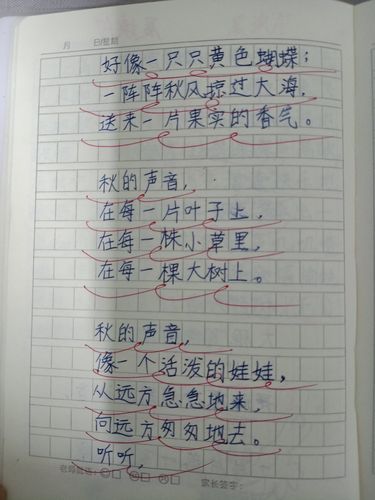 月 日/星期
好像一只只黄色蝴蝶;
一阵阵秋风掠过大海,
送来一片果实的香气。
秋的声音,
在每一片叶子上,
在每一株小草里,
在每一棵大树上。
秋的声音,
像一个活泼的娃娃,
从远方急急地来,
向远方匆匆地去。
听听,
家长签字: